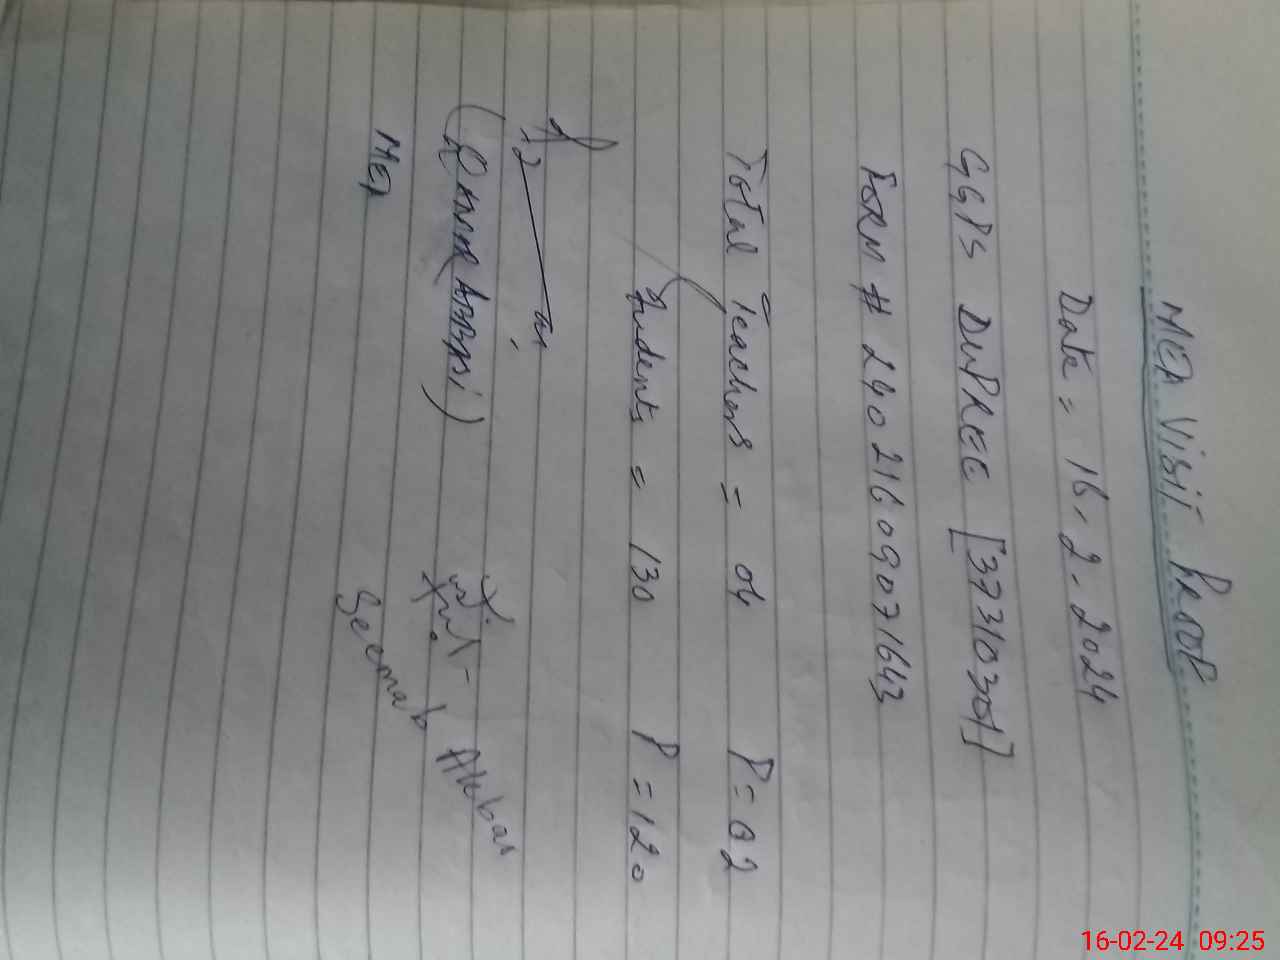 MEA Visit Resot
Date = 16.2.2024
GGPS DUPREE [37310301]
FORM # 24021609071643
Total Teachers = 04 P=02
Students = 130 P=120
(QAMAR ABBASI)
MEA
Seemab Akbar
16-02-24 09:25